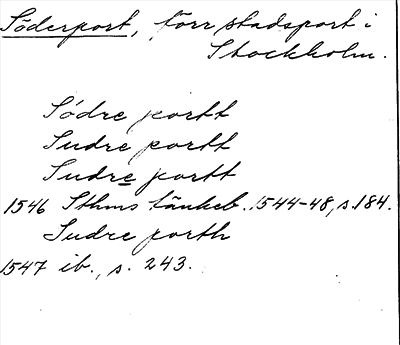 Söderport, förr stadsport i
Stockholm.
Södre portt
Sudre portt
Sudre portt
1546 Sthms tänkeb. 1544-48, s. 184.
Sudre porth
1547 ib., s. 243.